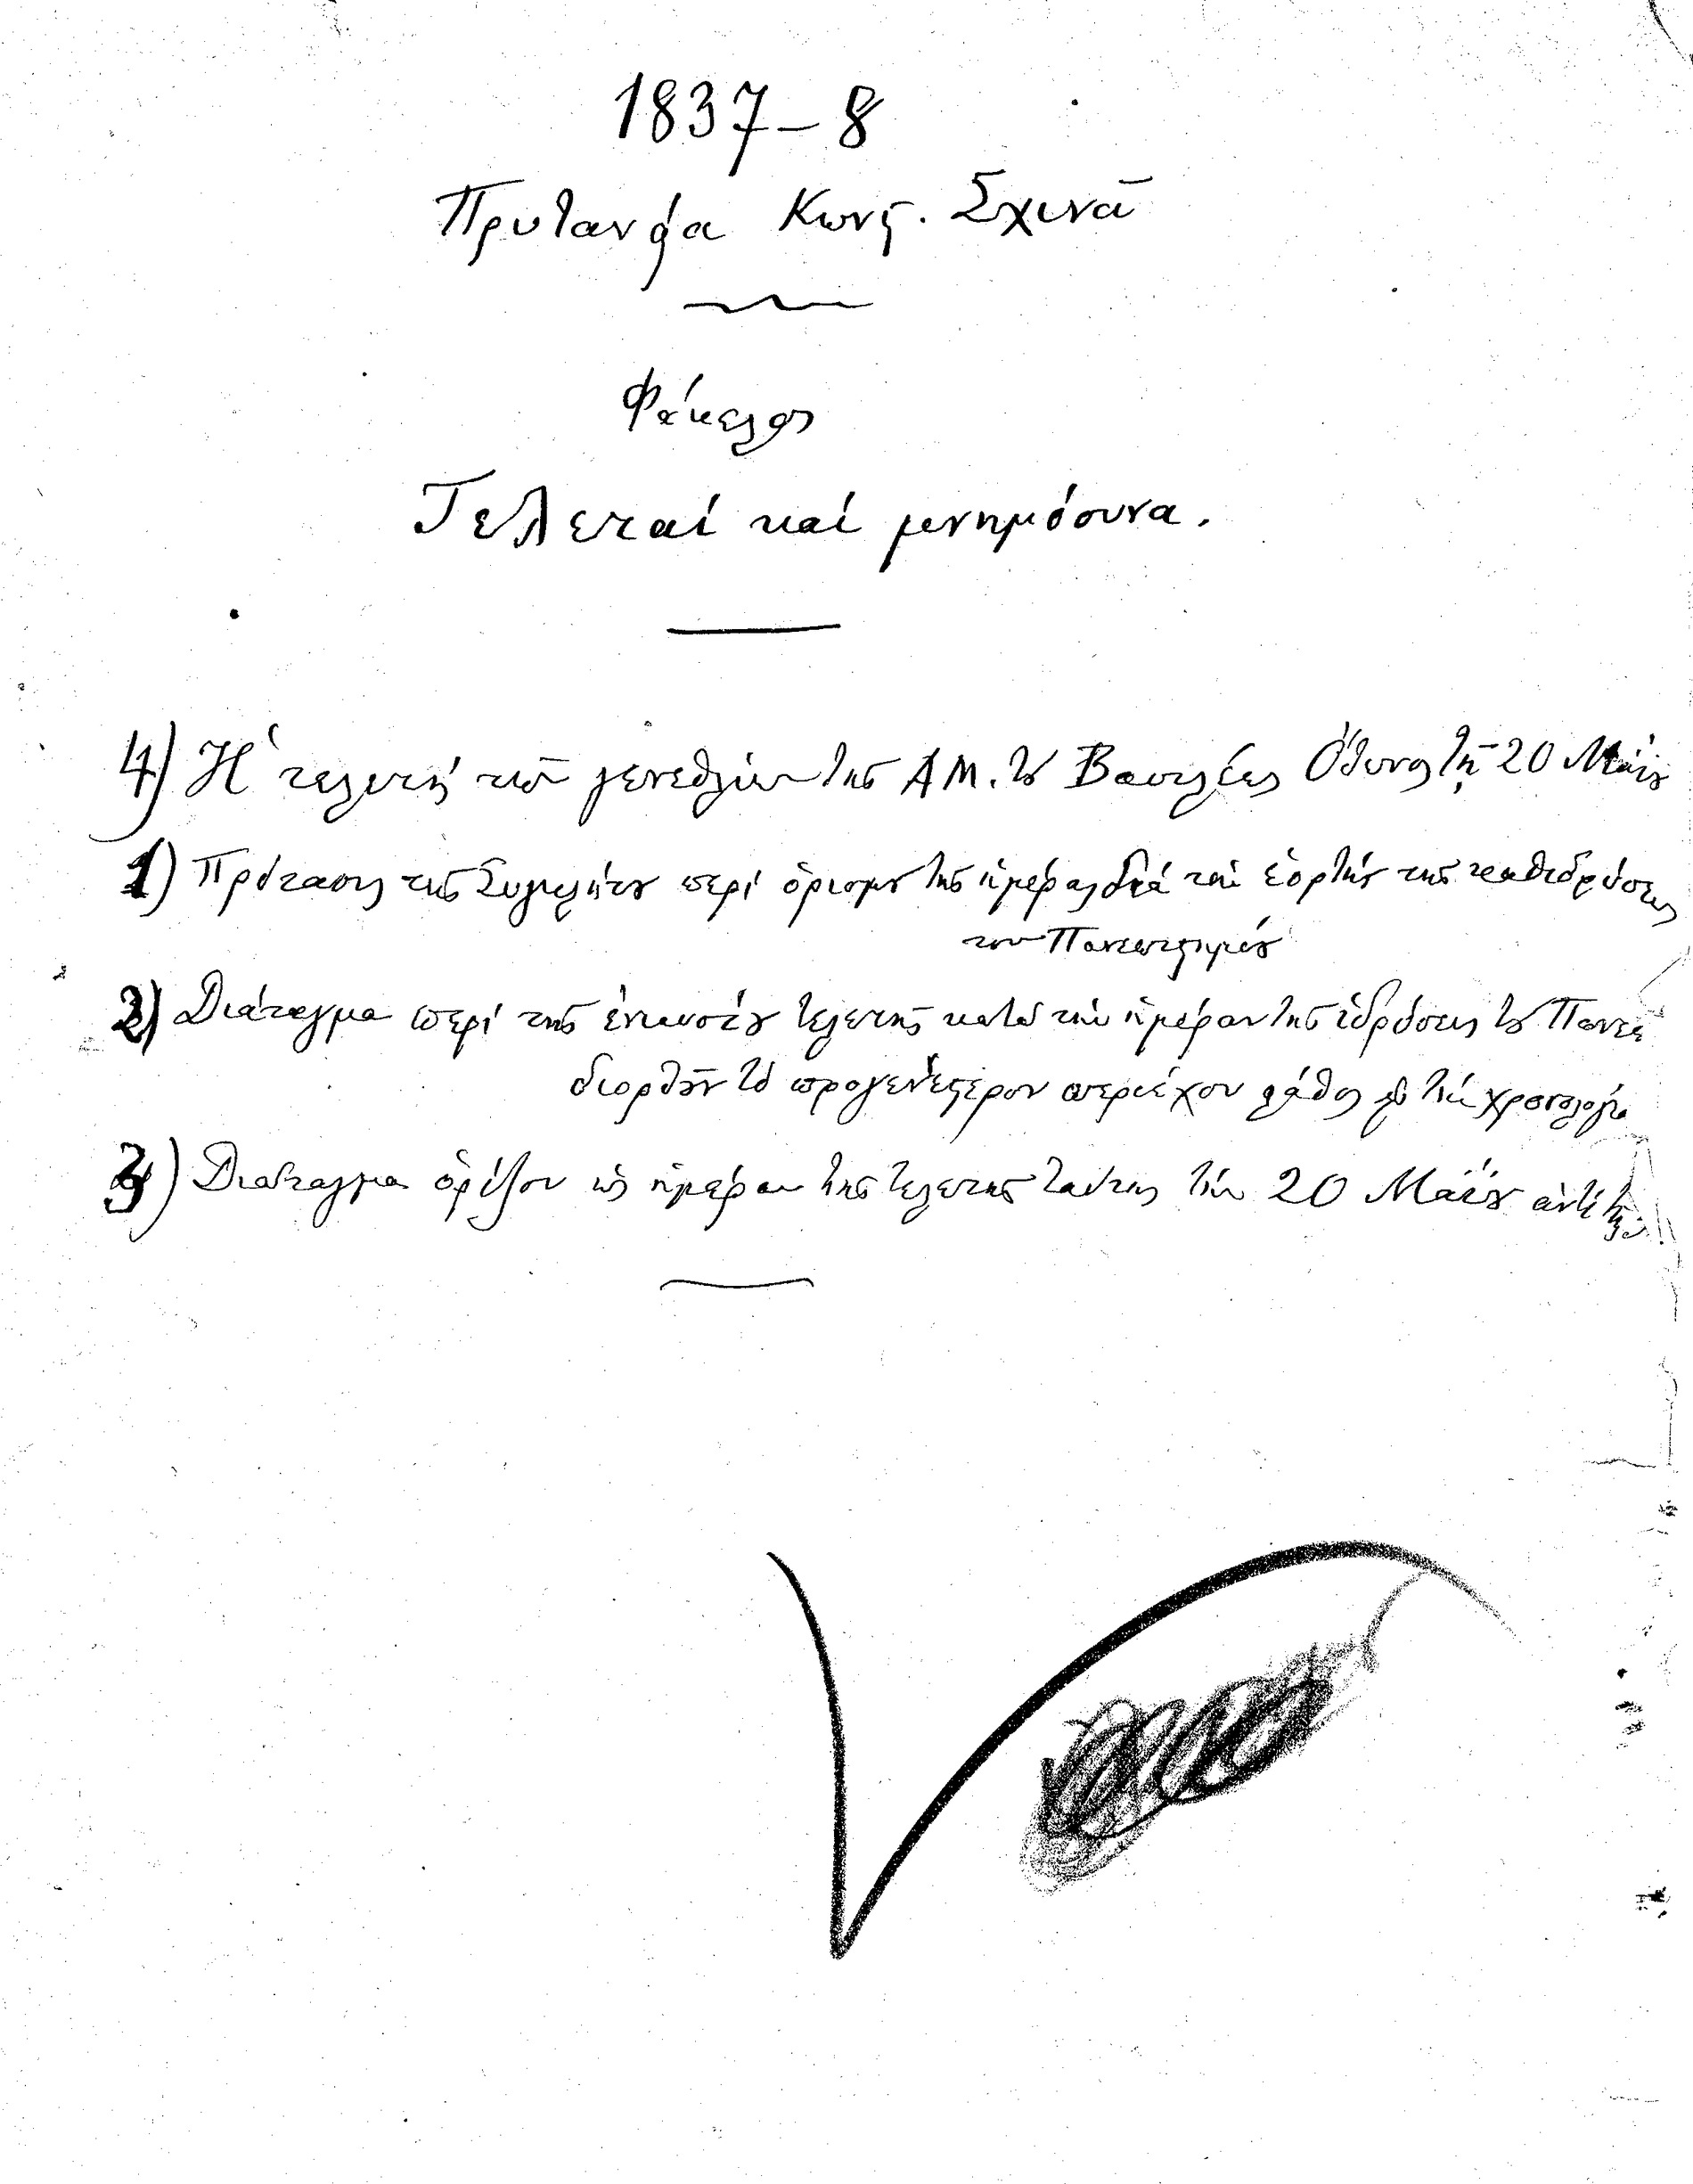 1837–8
Πρυτανεία Κωνς. Σχινᾶ
Φάκελος
Τελεταί καί μνημόσυνα.
4) Ἡ τελετή τῶν γενεθλίων της Α Μ. τȣ Βασιλέως Ὄθωνος τῇ 20 Μαΐȣ
1) Πρότασις της Συγκλήτȣ περί ὁρισμȣ της ἡμέρας διά τήν ἑορτήν της καθιδρύσεως
του Πανεπιςημίȣ
2) Διάταγμα περί της ἐνιαυσίȣ τελετης κατά τήν ἡμέραν της ἱδρύσεως τȣ Πανεπ
διορθȣν τό προγενέςερον περιέχον λάθος εἰς τήν χρονολογία
3) Διάταγμα ὁρίζον ὡς ἡμέραν της τελετης ταύτης τήν 20 Μαΐȣ ἀντί της